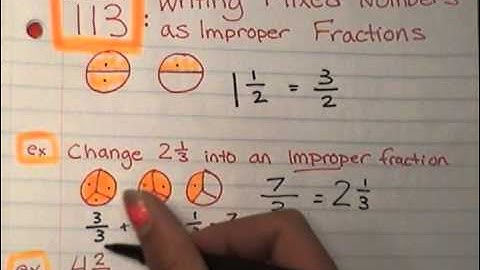 113: Writing Mixed Numbers
as Improper Fractions
1 1/2 = 3/2
ex Change 2 1/3 into an Improper fraction
7/3 = 2 1/3
3/3 + 1/3
ex 4 2/